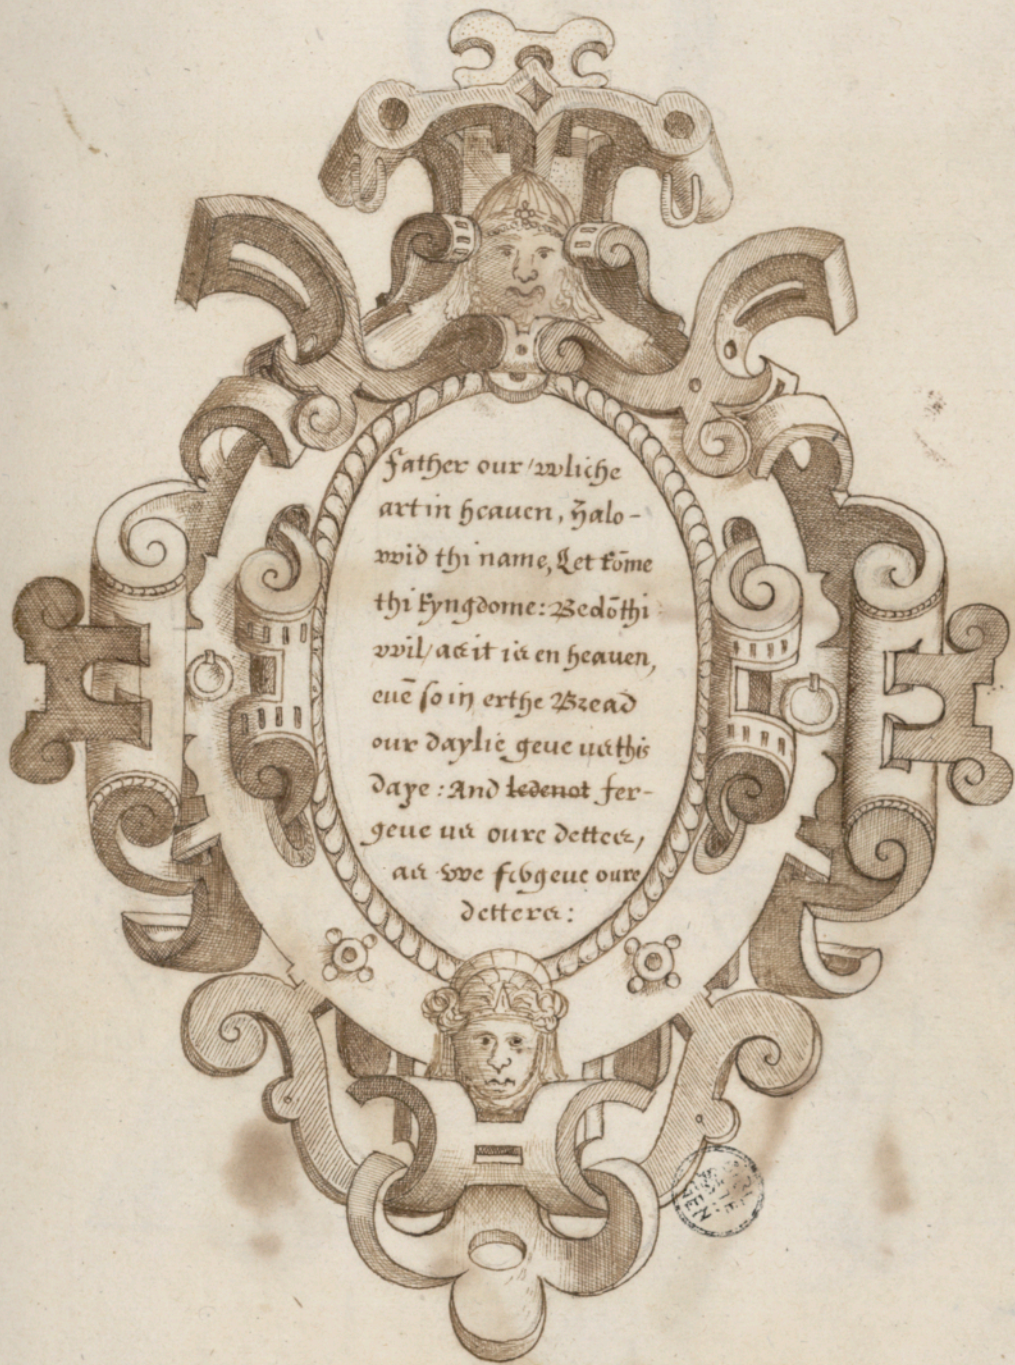 Father our/wliche
art in heaven, Halo-
wid thi name, Let kōme
thi kyngdome: Be dō thi
wil/ as it is en heaven,
evē so in erthe Bread
our daylie geve us this
daye: And ledenot fer-
geve us oure dettes,
as we forgeve oure
detters: